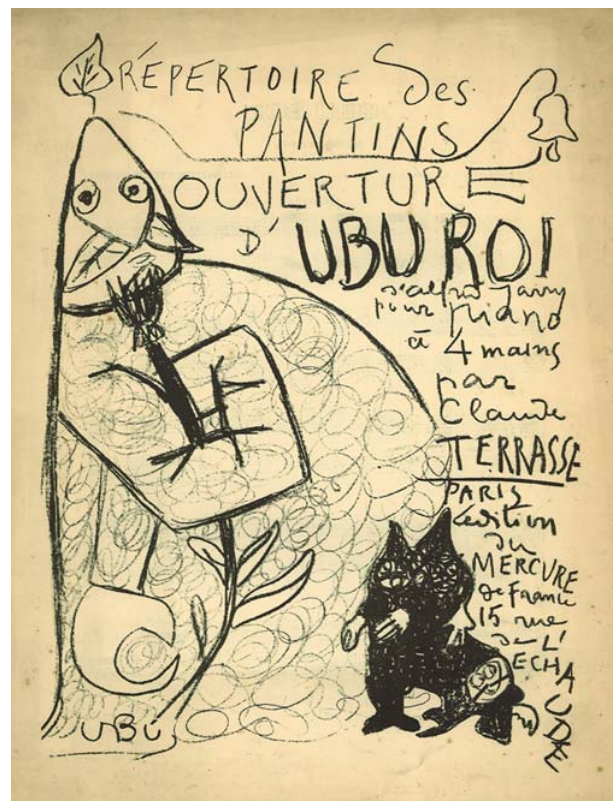 RÉPERTOIRE Des
PANTINS
OUVERTURE
D'UBU ROI
d'alfred Jarry
pour piano
à 4 mains
par
Claude
TERRASSE
PARIS
édition
du
MERCURE
de France
15 rue
de L'
ECHAUDE
UBU